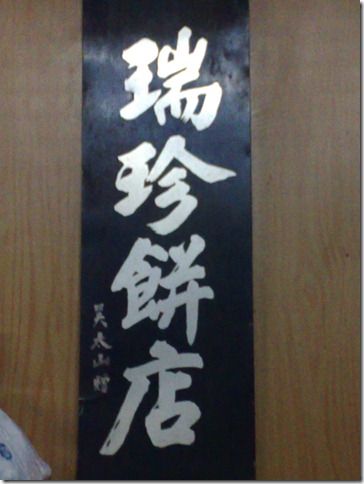 瑞珍餅店
吳太山贈